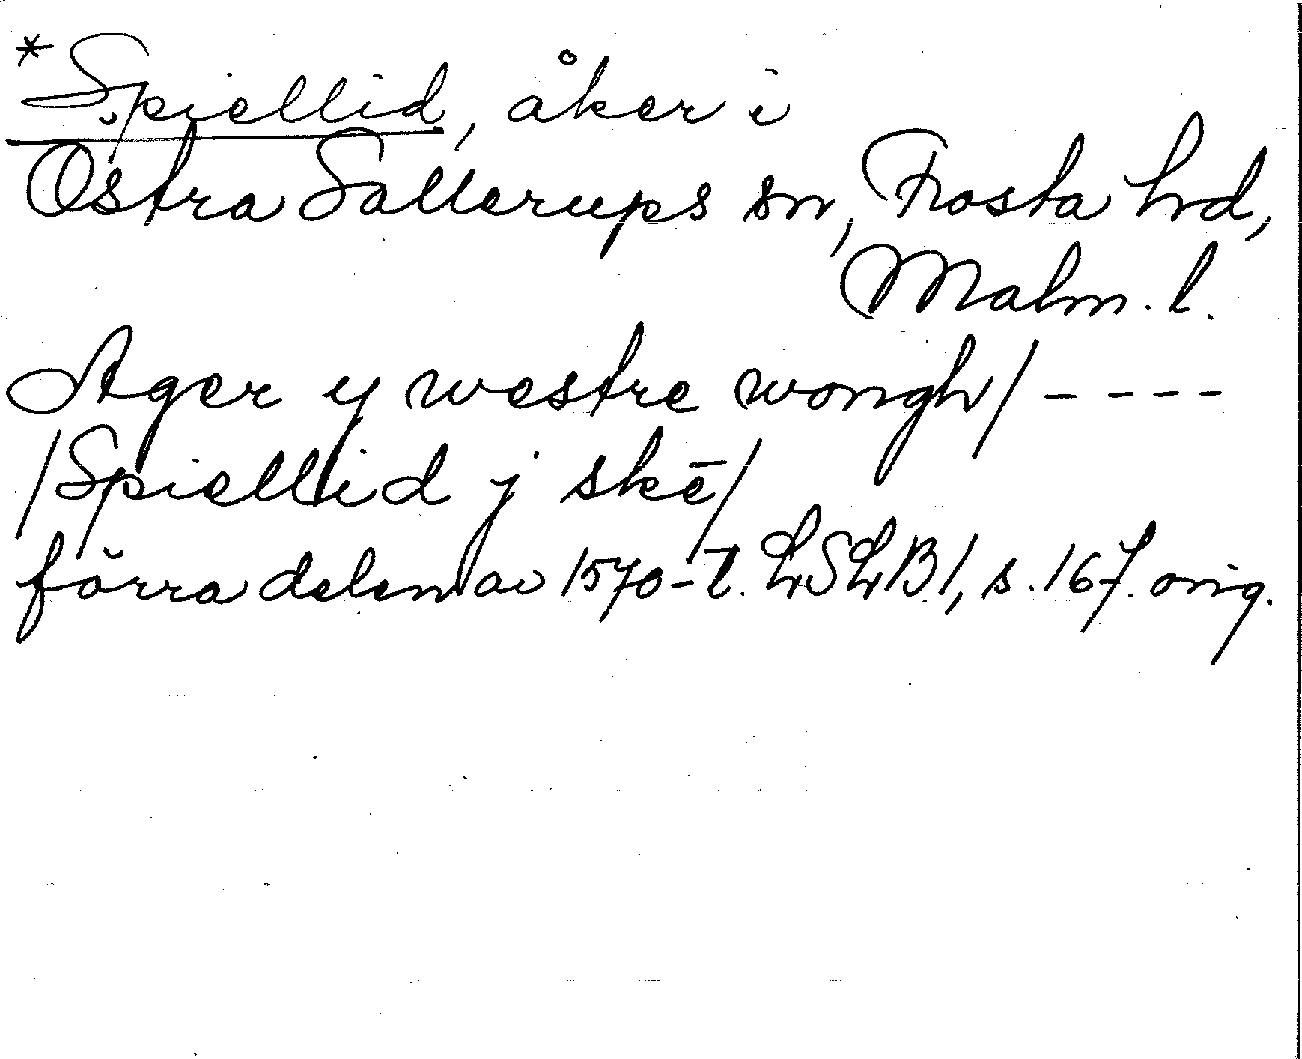 *Spiellid, åker i
Östra Sallerups sn, Frosta hrd,
Malm. l.
Ager y westre wongh/ - - - -
/Spiellid j skē/
förra delen av 1570-t. LSLB1, s. 167. orig.